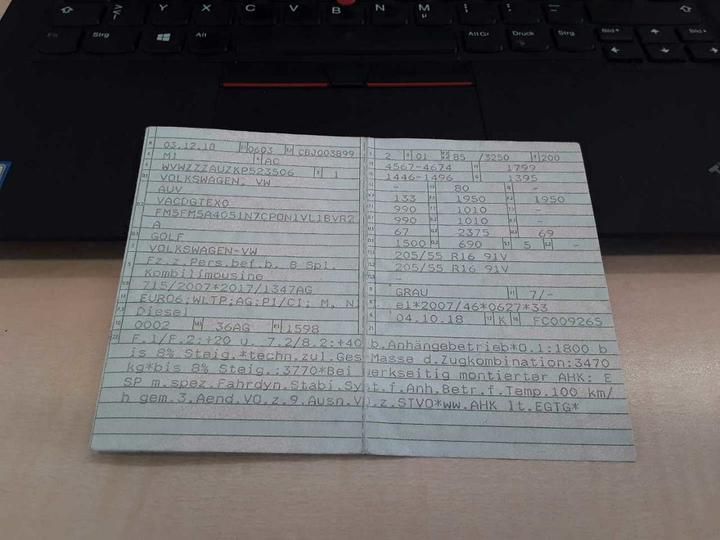 Y
X
C
V
B
N
M
µ
Fn
Strg
Alt
Alt Gr
Druck
Strg
Bild
Bild
03.12.18 0603 CBJ003899
M1 AC
WVWZZZAUZKP523506 1
VOLKSWAGEN, VW
AUV
VACDGTEX0
FM5FM5A4051N7CPON1VL1BVR2
A
GOLF
VOLKSWAGEN-VW
Fz.z.Pers.bef.b. 8 Spl.
Kombilimousine
715/2007*2017/1347AG
EURO6;WLTP;AG;P1/CI; M, N
Diesel
0002 36AG 1598
2 01 85 /3250 200
4567-4674 1799
1446-1496 1395
- 80 -
133 1950 1950
990 1010 -
990 1010 -
67 2375 69
1500 690 5 -
205/55 R16 91V
205/55 R16 91V
-
GRAU 7/-
e1*2007/46*0627*33
04.10.18 K FC009265
F.1/F.2:+20 u. 7.2/8.2:+40 b.Anhängebetrieb*O.1:1800 b
is 8% Steig.*techn.zul.Ges Masse d.Zugkombination:3470
kg*bis 8% Steig.:3770*Bei werkseitig montierter AHK: E
SP m.spez.Fahrdyn.Stabi.Syst.f.Anh.Betr.f.Temp.100 km/
h gem.3.Aend.VO.z.9.Ausn.VO.z.STVO*ww.AHK lt.EGTG*